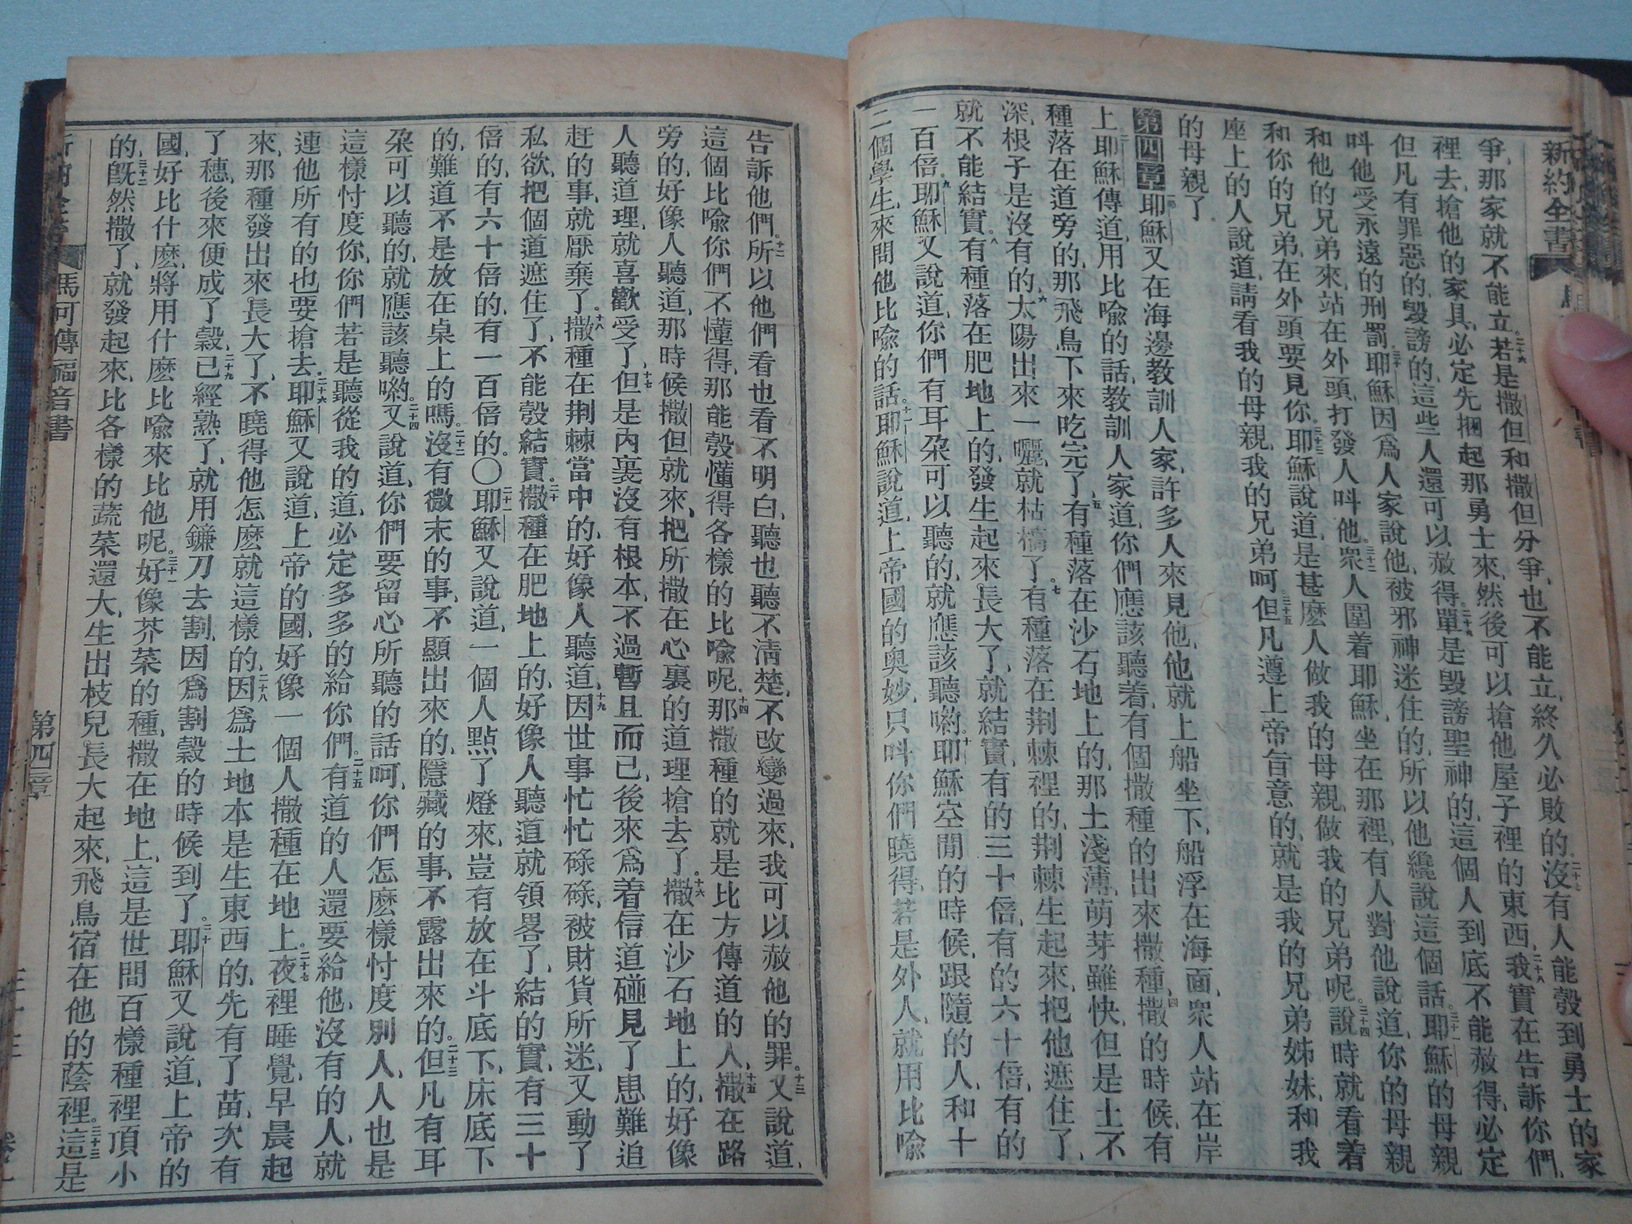 新約全書
爭、那家就不能立。二十六若是撒但和撒但分爭、也不能立、終久必敗的。二十七沒有人能彀到勇士的家
裡去、搶他的家具、必定先捆起那勇士來、然後可以搶他屋子裡的東西。二十八我實在告訴你們、
但凡有罪惡的、毀謗的、這些人還可以赦得、二十九單是毀謗聖神的、這個人到底不能赦得、必定
呌他受永遠的刑罰。三十耶穌因爲人家說他、被邪神迷住的、所以他纔說這個話。三十一耶穌的母親
和他的兄弟來、站在外頭、打發人呌他。三十二衆人圍着耶穌坐在那裡、有人對他說道、你的母親
和你的兄弟、在外頭要見你。三十三耶穌說道、是甚麽人做我的母親、做我的兄弟呢。三十四說時就看着
座上的人說道、請看我的母親、我的兄弟呵。三十五但凡遵上帝旨意的、就是我的兄弟姊妹、和我
的母親了。
第四章 耶穌又在海邊教訓人家、許多人來見他、他就上船坐下、船浮在海面、衆人站在岸
上。二耶穌傳道、用比喩的話教訓人家道、三你們應該聽着、有個撒種的出來撒種、四撒的時候、有
種落在道旁的、那飛鳥下來吃完了。五有種落在沙石地上的、那土淺薄、萌芽雖快、但是土不
深、根子是沒有的、六太陽出來一曬、就枯槁了。七有種落在荆棘裡的、荆棘生起來、把他遮住了、
就不能結實。八有種落在肥地上的、發生起來、長大了、就結實、有的三十倍、有的六十倍、有的
一百倍。九耶穌又說道、你們有耳朶可以聽的、就應該聽喲。十耶穌空閒的時候、跟隨的人、和十
二個學生、來問他比喩的話。十一耶穌說道、上帝國的奥妙、只呌你們曉得、若是外人、就用比喩
告訴他們。十二所以他們看也看不明白、聽也聽不清楚、不改變過來、我可以赦他的罪。十三又說道、
這個比喩、你們不懂得、那能彀懂得各樣的比喩呢。十四那撒種的、就是比方傳道的人。十五撒在路
旁的、好像人聽道、那時候撒但就來、把所撒在心裏的道理搶去了。十六撒在沙石地上的、好像
人聽道理、就喜歡受了、十七但是內裏沒有根本、不過暫且而已、後來爲着信道碰見了患難追
赶的事、就厭棄了。十八撒種在荆棘當中的、好像人聽道、十九因世事忙忙碌碌、被財貨所迷、又動了
私欲、把個道遮住了、不能彀結實。二十撒種在肥地上的、好像人聽道就領畧了、結的實、有三十
倍的、有六十倍的、有一百倍的。〇二十一耶穌又說道、一個人點了燈來、豈有放在斗底下、床底下
的、難道不是放在桌上的嗎。二十二沒有微末的事、不顯出來的、隱藏的事、不露出來的。二十三但凡有耳
朶可以聽的、就應該聽喲。二十四又說道、你們要留心所聽的話呵、你們怎麽樣忖度別人、人也是
這樣忖度你、你們若是聽從我的道、必定多多的給你們。二十五有道的人還要給他、沒有的人、就
連他所有的也要搶去。二十六耶穌又說道、上帝的國、好像一個人撒種在地上、二十七夜裡睡覺、早晨起
來、那種發出來長大了、不曉得他怎麽就這樣的。二十八因爲土地本是生東西的、先有了苗、次有
了穗、後來便成了穀。二十九已經熟了、就用鐮刀去割、因爲割穀的時候到了。三十耶穌又說道、上帝的
國好比什麽、將用什麽比喩來比他呢。三十一好像芥菜的種、撒在地上、這是世間百樣種裡頂小
的、三十二旣然撒了、就發起來、比各樣的蔬菜還大、生出枝兒長大起來、飛鳥宿在他的蔭裡。三十三這是
馬可傳福音書 第四章